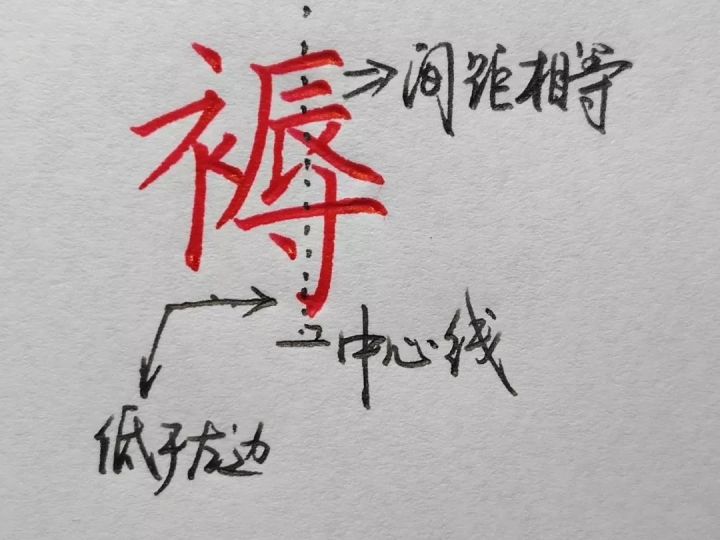 褥
间距相等
中心线
低于左边